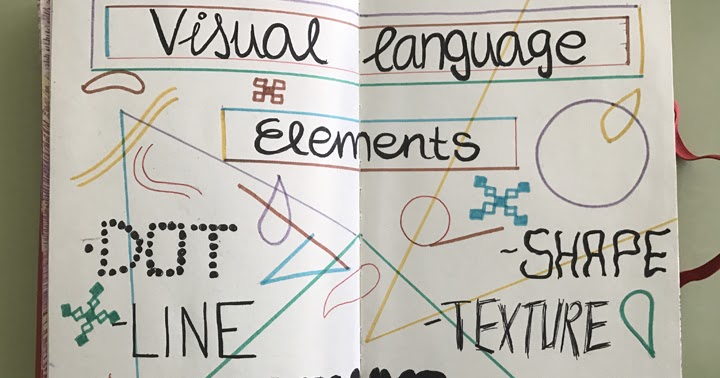 Visual language
Elements
-DOT
-LINE
-SHAPE
-TEXTURE